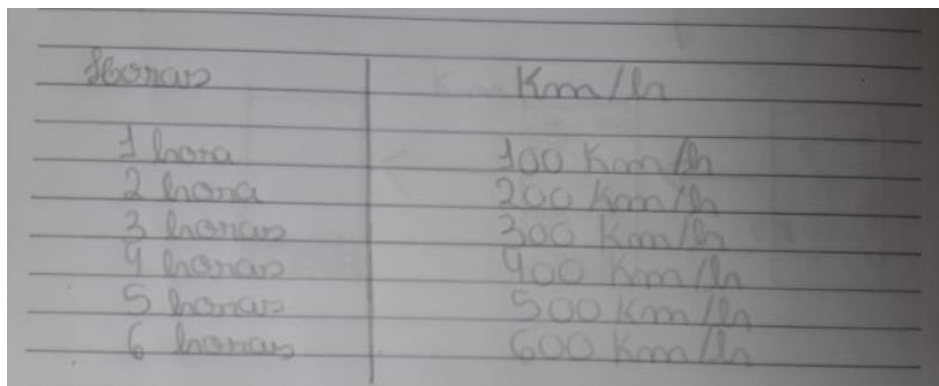 Horas Km/h
1 hora 100 Km/h
2 hora 200 Km/h
3 horas 300 Km/h
4 horas 400 Km/h
5 horas 500 Km/h
6 horas 600 Km/h